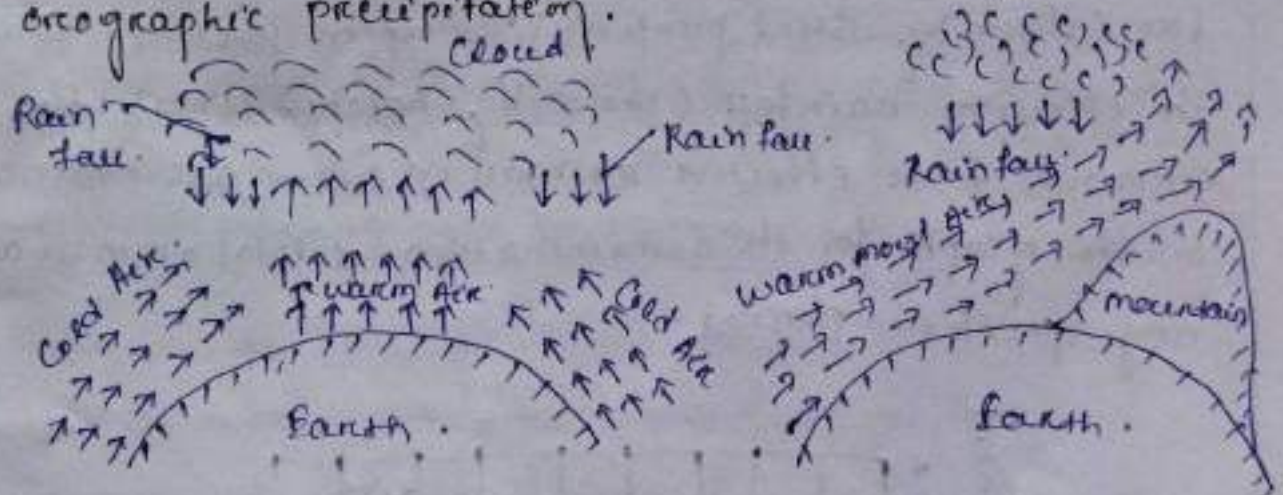 oreographic precipitation.
Cloud
Rain
fall.
Rainfall.
Cold Air
warm Air
Cold Air
Earth.
Rainfall.
warm moist Air
mountain
Earth.